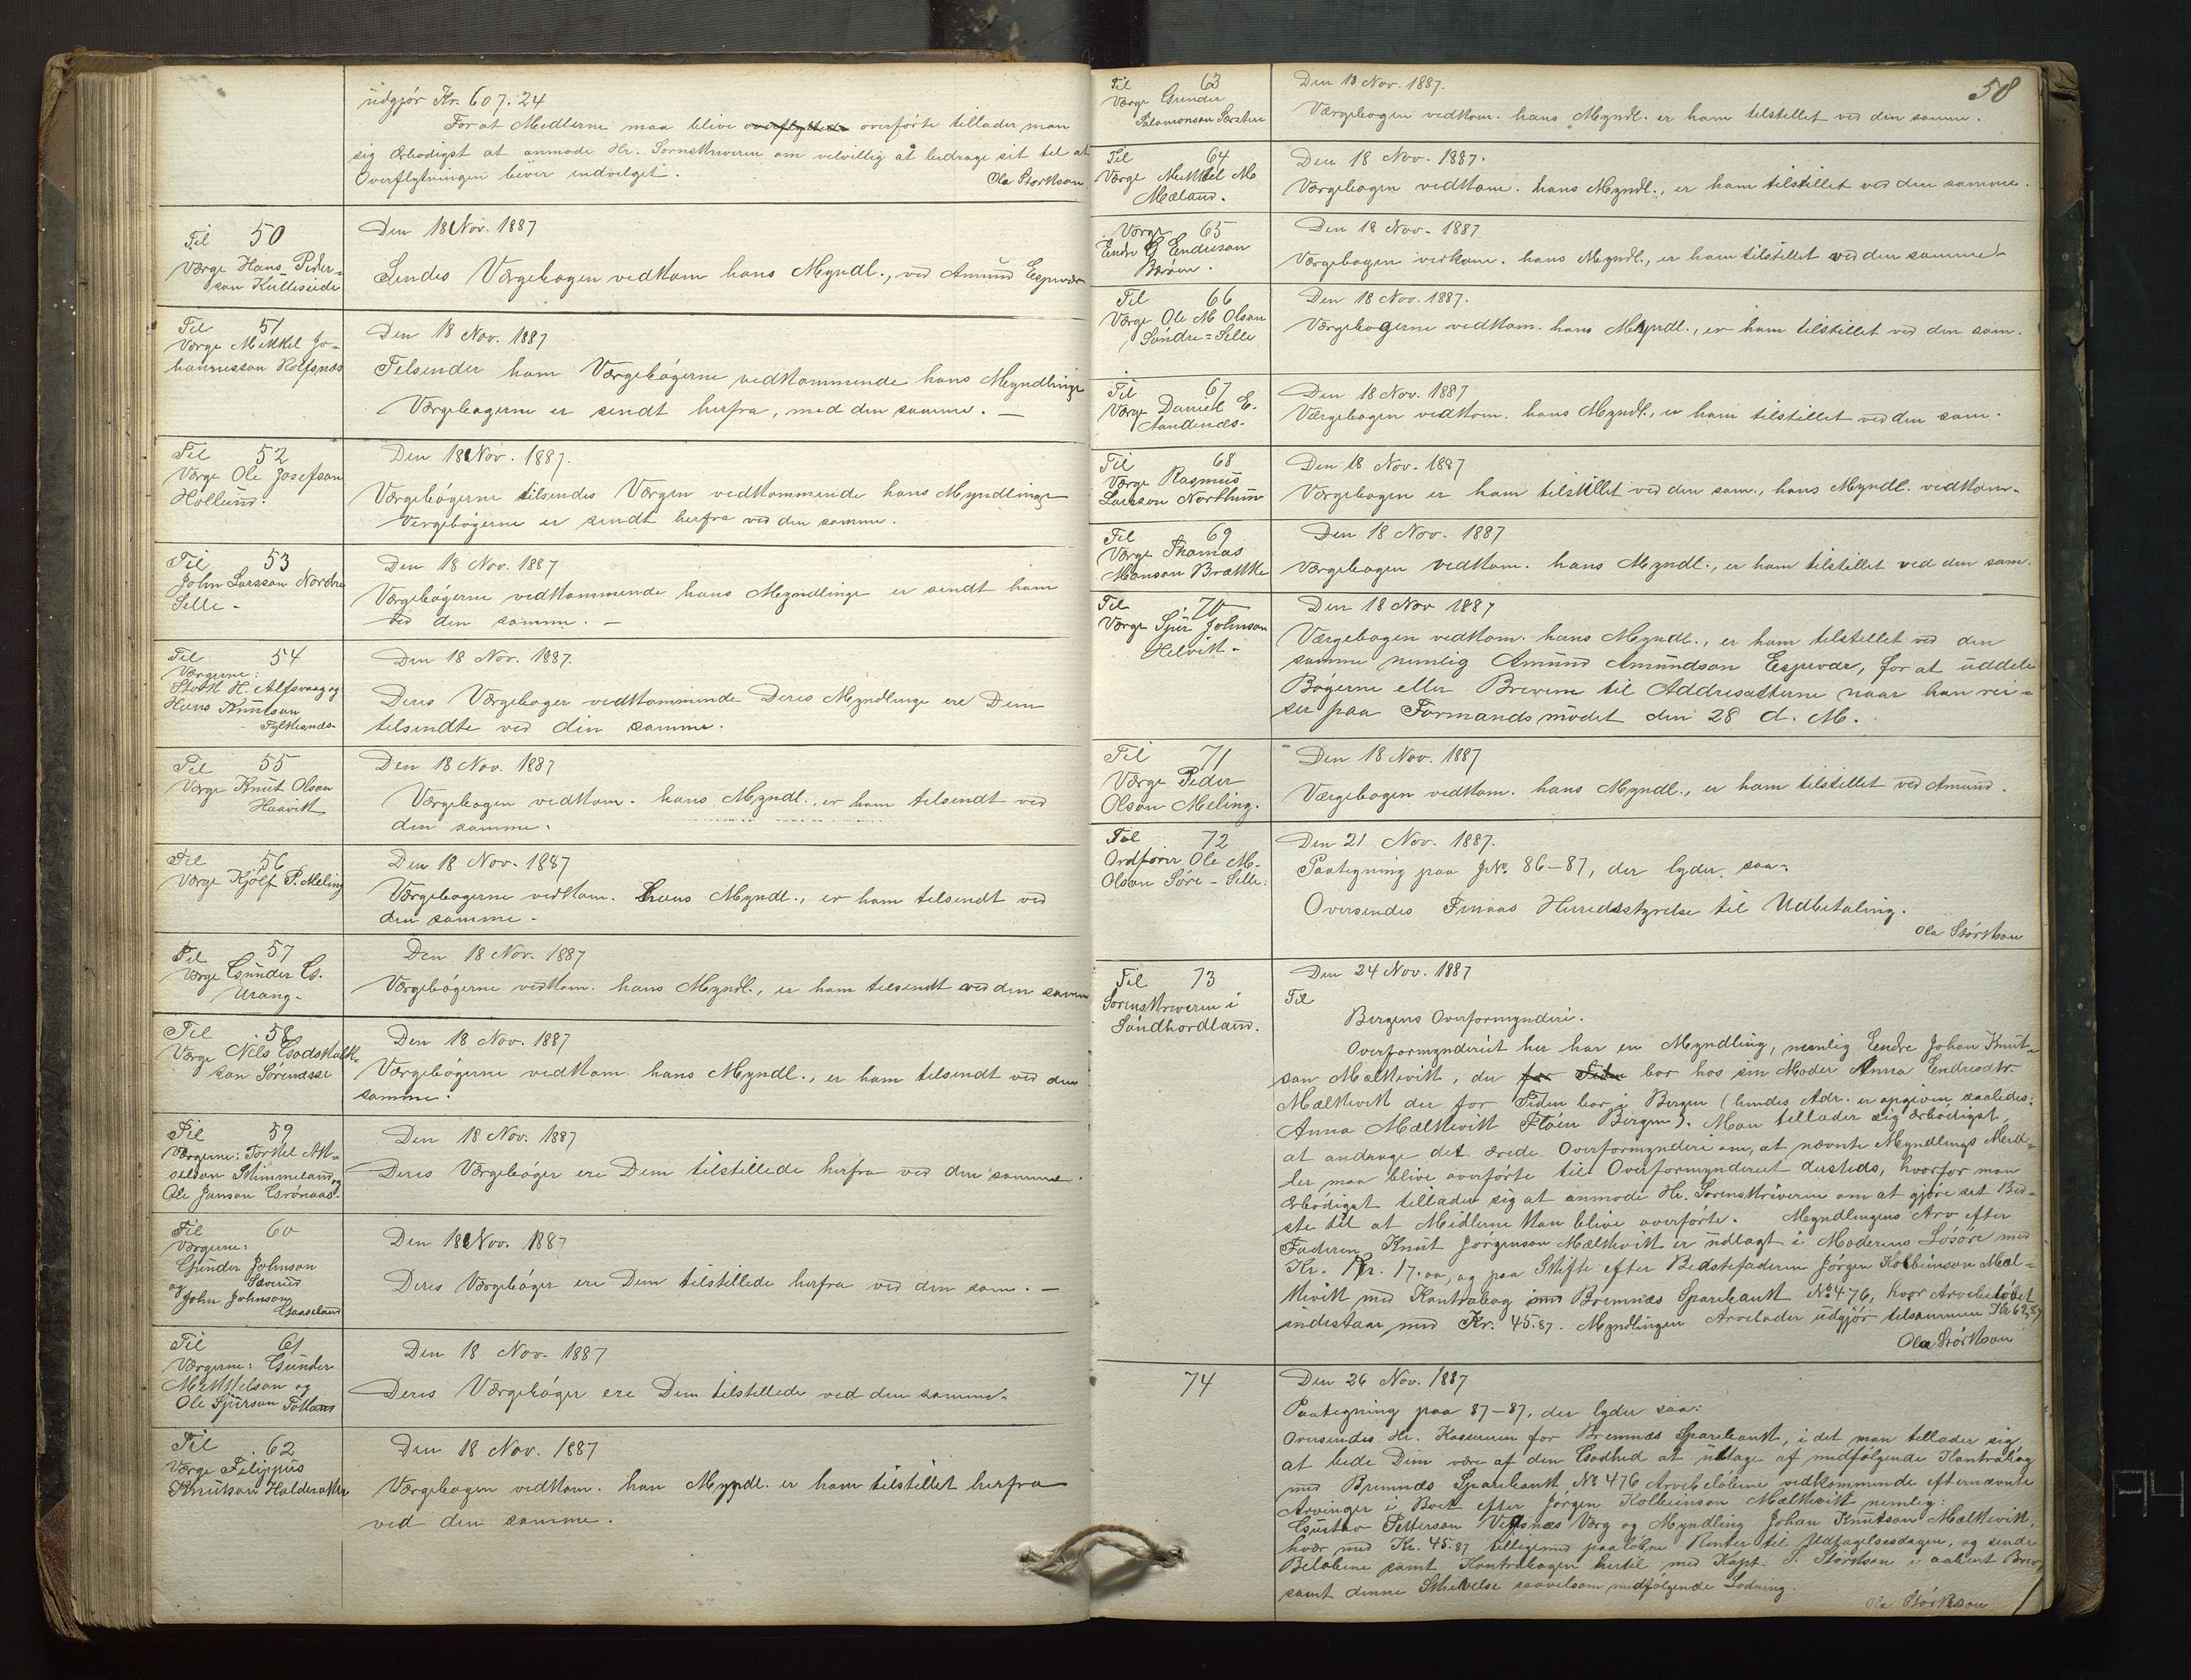 udgjör Kr. 607.24
For at Medlerne maa blive overflyttede overförte tillader man
sig Ærbödigst at anmode Hr. Sorenskriveren om velvillig at bidrage sit til at
Overflytningen bliver indvilget.
Ola Störkson
Til 50
Værge Hans Peder-
son Kulleseide
Den 18 Nov. 1887
Sendes Værgebogen vedkom hans Myndl., ved Amund Espevær
Til 51
Værge Mikkel Jo-
hannesson Rolfsnæs
Den 18 Nov. 1887
Tilsender ham Værgebögerne vedkommende hans Myndlinge
Værgebogerne er sendt herfra, med den samme. —
Til 52
Værge Ole Josefson
Hollund.
Den 18 Nov. 1887.
Værgebögerne tilsendes Værgen vedkommende hans Myndlinge
Vergebögerne er sendt herfra ved den samme.
Til 53
John Larsson Nordre
Selle -
Den 18 Nov. 1887
Værgebögerne vedkommende hans Myndlinge er sendt ham
ved den samme. —
Til 54
Værgerne:
Störk H. Alfsvaag og
Hans Knutson
Fylkesnæs-
Den 18 Nov. 1887.
Deres Værgebager vedkommende Deres Myndlinge ere Dem
tilsendte ved den samme.
Til 55
Værge Knut Olson
Haavik
Den 18 Nov. 1887
Værgebogen vedkom. hans Myndl., er ham tilsendt ved
den samme.
Til 56
Værge Kjölf P. Meling
Den 18 Nov. 1887
Værgebogerne vedkom. hans Myndl., er ham tilsendt ved
den samme.
Til 57
Værge Gunder G.
Urang-
Den 18 Nov. 1887
Værgebögerne vedkom. hans Myndl., er ham tilsendt ved den samme
Til 58
Værge Nils Godskalk-
son Sörenæsse
Den 18 Nov. 1887
Værgebögerne vedkom. hans Myndl., er ham tilsendt ved den
samme.
Til 59
Værgerne: Torkel Ak-
selson Stimmeland og
Ole Janson Grönaas.
Den 18 Nov. 1887
Deres Værgeböger ere Dem tilstillede herfra ved den samme.
Til 60
Værgerne:
Gunder Johnson
Sæverud
og John Johnson
Gaaseland
Den 18 Nov. 1887
Deres Værgeböger ere Dem tilstillede herfra ved den sam. —
Til 61
Værgerne: Gunder
Mikkelson og
Ole Sjurson Totland
Den 18 Nov. 1887
Deres Værgeböger ere Dem tilstillede ved den samme-
Til 62
Værge Filippus
Knutson Halderaker
Den 18 Nov. 1887
Værgebogen vedkom. han Myndl. er ham tilstillet herfra
ved den samme.
58
Til 63
Værge Gunder
Salamonson
Den 18 Nov. 1887.
Værgebogen vedkom. hans Myndl. er ham tilstillet ved den samme.
Til 64
Værge Mikkel M
Mæland.
Den 18 Nov. 1887.
Værgebogen vedkom. hans Myndl., er ham tilstillet ved den samme.
Værge 65
Endre G Endreson
Den 18 Nov. 1887
Værgebogen vedkom. hans Myndl., er ham tilstillet ved den samme
Til 66
Værge Ole M Olson
Söndre=Selle
Den 18 Nov. 1887.
Værgebogerne vedkom. hans Myndl., er ham tilstillet ved den sam.
Til 67
Værge Daniel E.
Aandenæs.
Den 18 Nov. 1887
Værgebogen vedkom. hans Myndl., er ham tilstillet ved den sam.
Til 68
Værge Rasmus
Larsson Nortlun
Den 18 Nov. 1887
Værgebogen er ham tilstillet ved den sam., hans Myndl. vedkom.
Til 69
Værge Thomas
Monson Brække
Den 18 Nov. 1887
Værgebogen vedkom. hans Myndl., er ham tilstillet ved den sam.
Til 70
Værge Sjur Johnson
Helvik -
Den 18 Nov 1887
Værgebogen vedkom. hans Myndl., er ham tilstillet ved den
samme nemlig Amund Amundson Espevær, for at uddele
Bögerne eller Brevene til Addresatterne naar han rei-
ser paa Formandsmödet den 28 d. M.
Til 71
Værge Peder
Olson Meling.
Den 18 Nov. 1887
Værgebogen vedkom. hans Myndl., er ham tilstillet ved Amund.
Til 72
Ordförer Ole M.
Olson Söre - Selle.
Den 21 Nov. 1887.
Paategning paa J.No. 86-87, der lyder saa.
Oversendes Finaas Herredsstyrelse til Udbetaling.
Ola Störkson
Til 73
Sorenskriveren i
Söndhordland.
Den 24 Nov. 1887
Til
Bergens Overformynderi.
Overformynderiet her har en Myndling, nemlig Endre Johan Knut-
son Mælkevik, der for Tiden bor hos sin Moder Anna Endresdtr.
Mælkevik der for Tiden bor i Bergen (hendes Adr. er opgiven saaledes:
Anna Mælkevik Flöien Bergen). Man tillader sig ærbödigst
at andrage det ærede Overformynderi om, at nævnte Myndlings Mid-
ler maa blive overförte til Overformynderiet dersteds, hvorfor man
Ærbödigst tillader sig at anmode Hr. Sorenskriveren om at gjöre sit Bed-
ste til at Midlerne kan blive overförte. Myndlingens Arv efter
Faderen Knut Jörgenson Mælkevik er udlagt i Moderens Lösöre med
Kr. 17.00, og paa Skifte efter Bedstefaderen Jörgen Kolbeinson Mæl-
kevik med Kontrabog Bremnæs Sparebank No. 476, hvor Arvebelöbet
indestaar med Kr. 45.87. Myndlingen Arvelader udgjör tilsammen Kr 62,87
Ola Störkson
74
Den 26 Nov. 1887
Paategning paa 87-87, der lyder saa:
Oversendes Hr. Kassereren for Bremnæs Sparebank, i det man tillader sig
at bede Dem være af den Godhed at udtage af medfölgende Kontrabog
med Bremnæs Sparebank No 476 Arvebelöbene vedkommende efternævnte
Arvinger i Boet efter Jörgen Kolbeinson Mælkevik nemlig:
Gustav Petterson Vestnæs Værg og Myndling Johan Knutson Mælkevik,
hvær med Kr. 45.87 tilligemed paalöbne Renter til Udtagelsesdagen, og sende
Belöbene samt Kontrabogen hertil med Kapt. S. Störkson i aabent Brev,
samt denne Skrivelse saavelsom medfölgende Ladning.
Ola Störkson